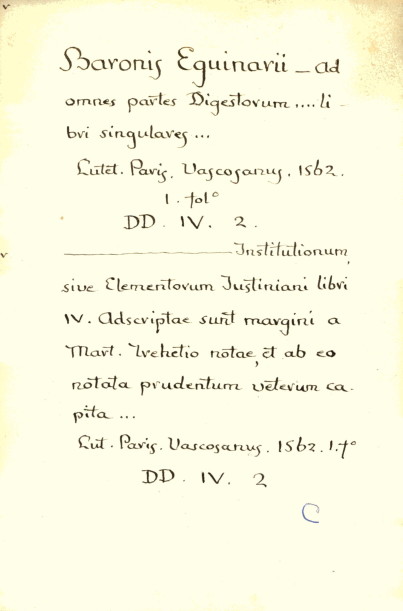 v
Baronis Eguinarii – ad
omnes partes Digestorum .... li -
bri singulares ...
Lutet. Paris. Vascosanus. 1562.
1. fol°
DD. IV. 2.
v ———————— Institutionum,
sive Elementorum Justiniani libri
IV. Adscriptae sunt margini a
Mart. Trehetio notae, et ab eo
notata prudentum veterum ca-
pita ...
Lut. Paris. Vascosanus. 1562. 1. f°
DD. IV. 2
C